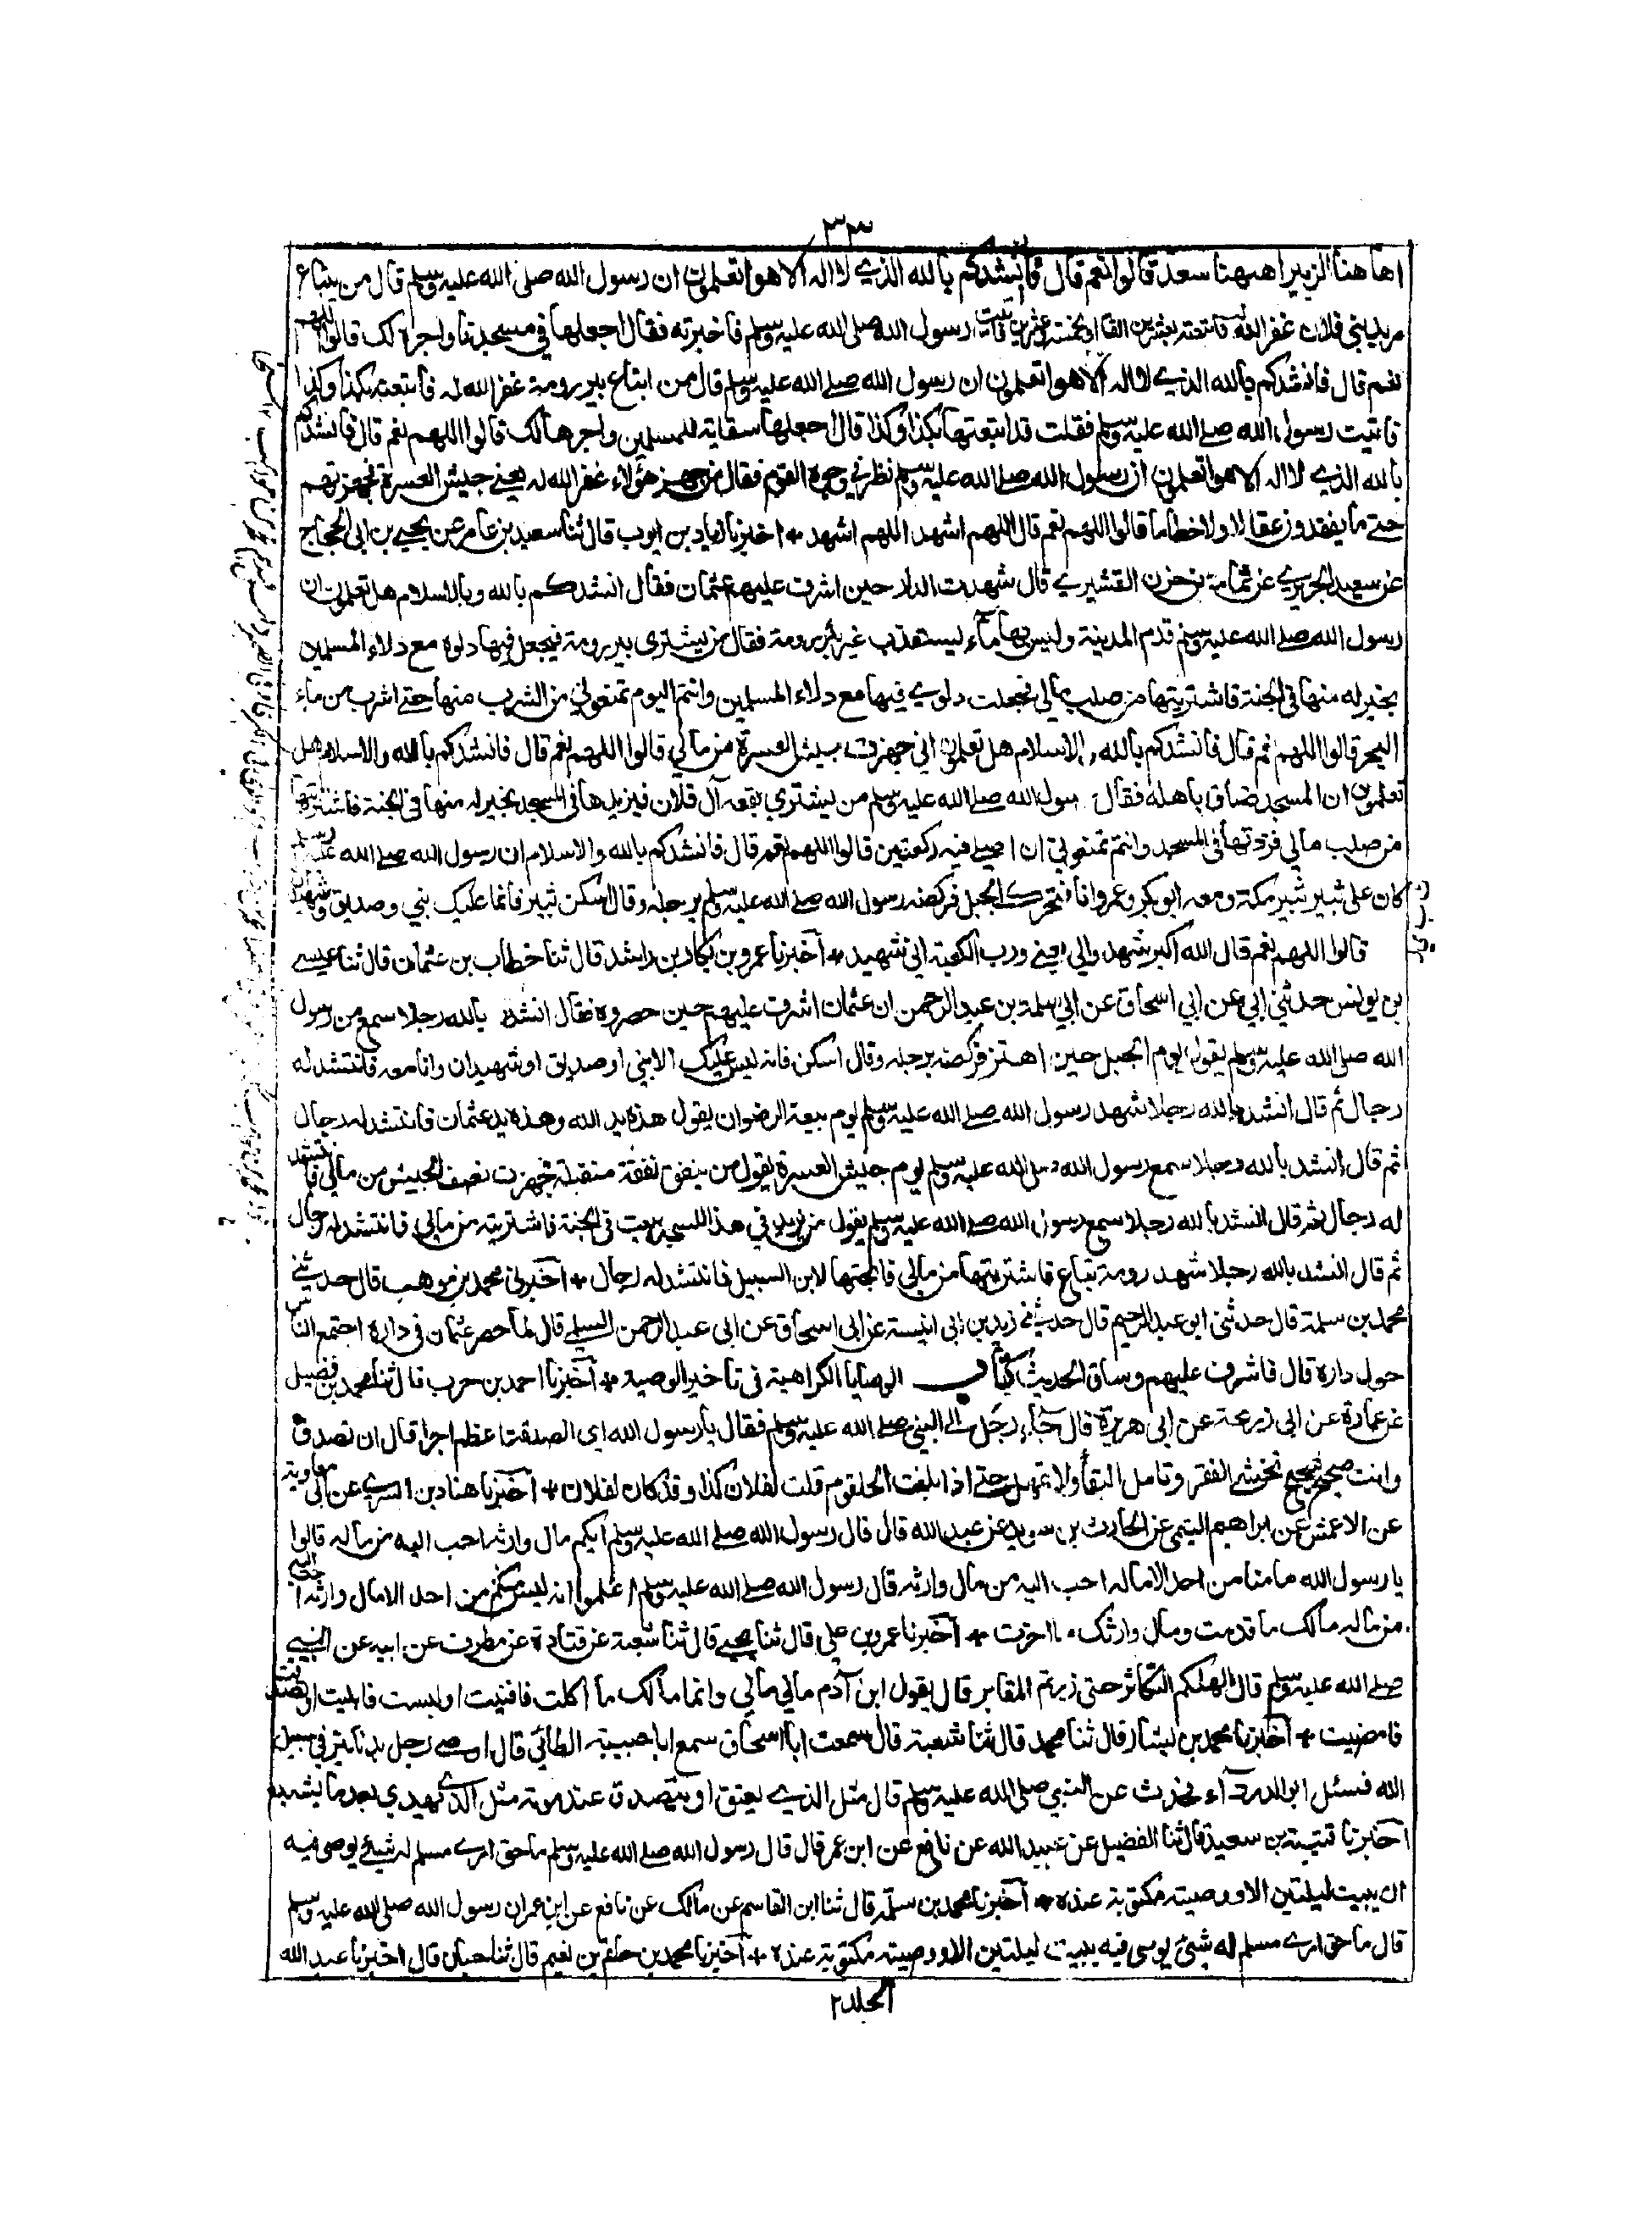 ٣٣
اهاهنا الزبير اههنا سعد قالوا نعم قال فأنشدكم بالله الذي لا اله الا هو اتعلمون ان رسول الله صلى الله عليه وسلم قال من يبتاع
مربد بني فلان غفر الله له فابتعته بعشرين الفا او بخمسة وعشرين فاتيت رسول الله صلى الله عليه وسلم فاخبرته فقال اجعلها في مسجدنا واجره لك قالوا اللهم
نعم قال فانشدكم بالله الذي لا اله الا هو اتعلمون ان رسول الله صلى الله عليه وسلم قال من ابتاع بير رومة غفر الله له فابتعته بكذا وكذا
فاتيت رسول الله صلى الله عليه وسلم فقلت قد ابتعتها بكذا وكذا قال اجعلها سقاية للمسلمين واجرها لك قالوا اللهم نعم قال فانشدكم
بالله الذي لا اله الا هو اتعلمون ان رسول الله صلى الله عليه وسلم نظر في وجوه القوم فقال من جهز هؤلاء غفر الله له يعني جيش العسرة فجهزتهم
حتى ما يفقدون عقالا ولا خطاما قالوا اللهم نعم قال اللهم اشهد اللهم اشهد + اخبرنا زياد بن ايوب قال ثنا سعيد بن عامر عن يحيى بن ابي الحجاج
عن سعيد الجريري عن ثمامة بن حزن القشيري قال شهدت الدار حين اشرف عليهم عثمان فقال انشدكم بالله وبالاسلام هل تعلمون ان
رسول الله صلى الله عليه وسلم قدم المدينة وليس بها ماء يستعذب غير بئر رومة فقال من يشتري بير رومة فيجعل فيها دلوه مع دلاء المسلمين
بخير له منها في الجنة فاشتريتها من صلب مالي فجعلت دلوي فيها مع دلاء المسلمين وانتم اليوم تمنعوني من الشرب منها حتى اشرب من ماء
البحر قالوا اللهم نعم قال فانشدكم بالله والاسلام هل تعلمون اني جهزت جيش العسرة من مالي قالوا اللهم نعم قال فانشدكم بالله والاسلام هل
تعلمون ان المسجد ضاق باهله فقال رسول الله صلى الله عليه وسلم من يشتري بقعة آل فلان فيزيدها في المسجد بخير له منها في الجنة فاشتريتها
من صلب مالي فزدتها في المسجد وانتم تمنعوني ان اصلي فيه ركعتين قالوا اللهم نعم قال فانشدكم بالله والاسلام ان رسول الله صلى الله عليه وسلم
كان على ثبير ثبير مكة ومعه ابو بكر وعمر وانا فتحرك الجبل فركضه رسول الله صلى الله عليه وسلم برجله وقال اسكن ثبير فانما عليك نبي وصديق وشهيدان
قالوا اللهم نعم قال الله اكبر شهد والي يعني ورب الكعبة اني شهيد + اخبرنا عمرو بن بكار بن راشد قال ثنا خطاب بن عثمان قال ثنا عيسى
بن يونس حدثني ابي عن ابي اسحاق عن ابي سلمة بن عبد الرحمن ان عثمان اشرف عليهم حين حصروه فقال انشد بالله رجلا سمع من رسول
الله صلى الله عليه وسلم يقول يوم الجبل حين اهتز فركضه برجله وقال اسكن فانه ليس عليك الا نبي او صديق او شهيدان وانا معه فانتشد له
رجال ثم قال انشد بالله رجلا شهد رسول الله صلى الله عليه وسلم يوم بيعة الرضوان يقول هذه يد الله وهذه يد عثمان فانتشد له رجال
ثم قال انشد بالله رجلا سمع رسول الله صلى الله عليه وسلم يوم جيش العسرة يقول من ينفق نفقة متقبلة فجهزت نصف الجيش من مالي فانتشد
له رجال ثم قال انشد بالله رجلا سمع رسول الله صلى الله عليه وسلم يقول من يزيد في هذا المسجد ببيت في الجنة فاشتريته من مالي فانتشد له رجال
ثم قال انشد بالله رجلا شهد رومة تباع فاشتريتها من مالي فابحتها لابن السبيل فانتشد له رجال + اخبرني محمد بن موهب قال حدثني
محمد بن سلمة قال حدثني ابو عبد الرحيم قال حدثني زيد بن ابي انيسة عن ابي اسحاق عن ابي عبد الرحمن السلمي قال لما حصر عثمان في داره اجتمع الناس
حول داره قال فاشرف عليهم وساق الحديث كتاب الوصايا الكراهية في تاخير الوصية + اخبرنا احمد بن حرب قال ثنا محمد بن فضيل
عن عمارة عن ابي زرعة عن ابي هريرة قال جاء رجل الى النبي صلى الله عليه وسلم فقال يا رسول الله اي الصدقة اعظم اجرا قال ان تصدق
وانت صحيح شحيح تخشى الفقر وتامل البقاء ولا تمهل حتى اذا بلغت الحلقوم قلت لفلان كذا وقد كان لفلان + اخبرنا هناد بن السري عن ابي معاوية
عن الاعمش عن ابراهيم التيمي عن الحارث بن سويد عن عبد الله قال قال رسول الله صلى الله عليه وسلم ايكم مال وارثه احب اليه من ماله قالوا
يا رسول الله ما منا من احد الا ماله احب اليه من مال وارثه قال رسول الله صلى الله عليه وسلم اعلموا انه ليس منكم من احد الا مال وارثه احب اليه
من ماله مالك ما قدمت ومال وارثك ما اخرت + اخبرنا عمرو بن علي قال ثنا يحيى قال ثنا شعبة عن قتادة عن مطرف عن ابيه عن النبي
صلى الله عليه وسلم قال الهكم التكاثر حتى زرتم المقابر قال يقول ابن آدم مالي مالي وانما مالك ما اكلت فافنيت او لبست فابليت او تصدقت
فامضيت + اخبرنا محمد بن بشار قال ثنا محمد قال ثنا شعبة قال سمعت ابا اسحاق سمع ابا حبيبة الطائي قال اوصى رجل بدنانير في سبيل
الله فسئل ابو الدرداء فحدث عن النبي صلى الله عليه وسلم قال مثل الذي يعتق او يتصدق عند موته مثل الذي يهدي بعد ما يشبع
اخبرنا قتيبة بن سعيد قال ثنا الفضيل عن عبيد الله عن نافع عن ابن عمر قال قال رسول الله صلى الله عليه وسلم ما حق امرئ مسلم له شيئ يوصى فيه
ان يبيت ليلتين الا ووصيته مكتوبة عنده + اخبرنا محمد بن سلمة قال ثنا ابن القاسم عن مالك عن نافع عن ابن عمر ان رسول الله صلى الله عليه وسلم
قال ما حق امرئ مسلم له شيئ يوصى فيه يبيت ليلتين الا ووصيته مكتوبة عنده + اخبرنا محمد بن حاتم بن نعيم قال ثنا حبان قال اخبرنا عبد الله
الجلد٢